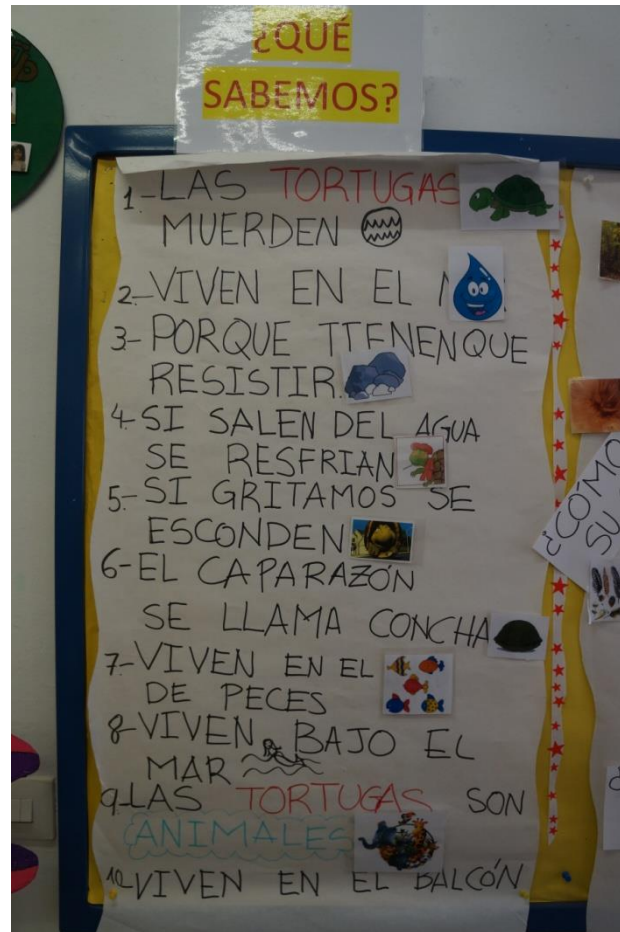 ¿QUÉ
SABEMOS?
1-LAS TORTUGAS
MUERDEN
2-VIVEN EN EL
3-PORQUE TIENEN QUE
RESISTIR
4-SI SALEN DEL AGUA
SE RESFRIAN
5-SI GRITAMOS SE
ESCONDEN
6-EL CAPARAZÓN
SE LLAMA CONCHA
7-VIVEN EN EL
DE PECES
8-VIVEN BAJO EL
MAR
9-LAS TORTUGAS SON
ANIMALES
10-VIVEN EN EL BALCÓN
¿CÓMO
SU